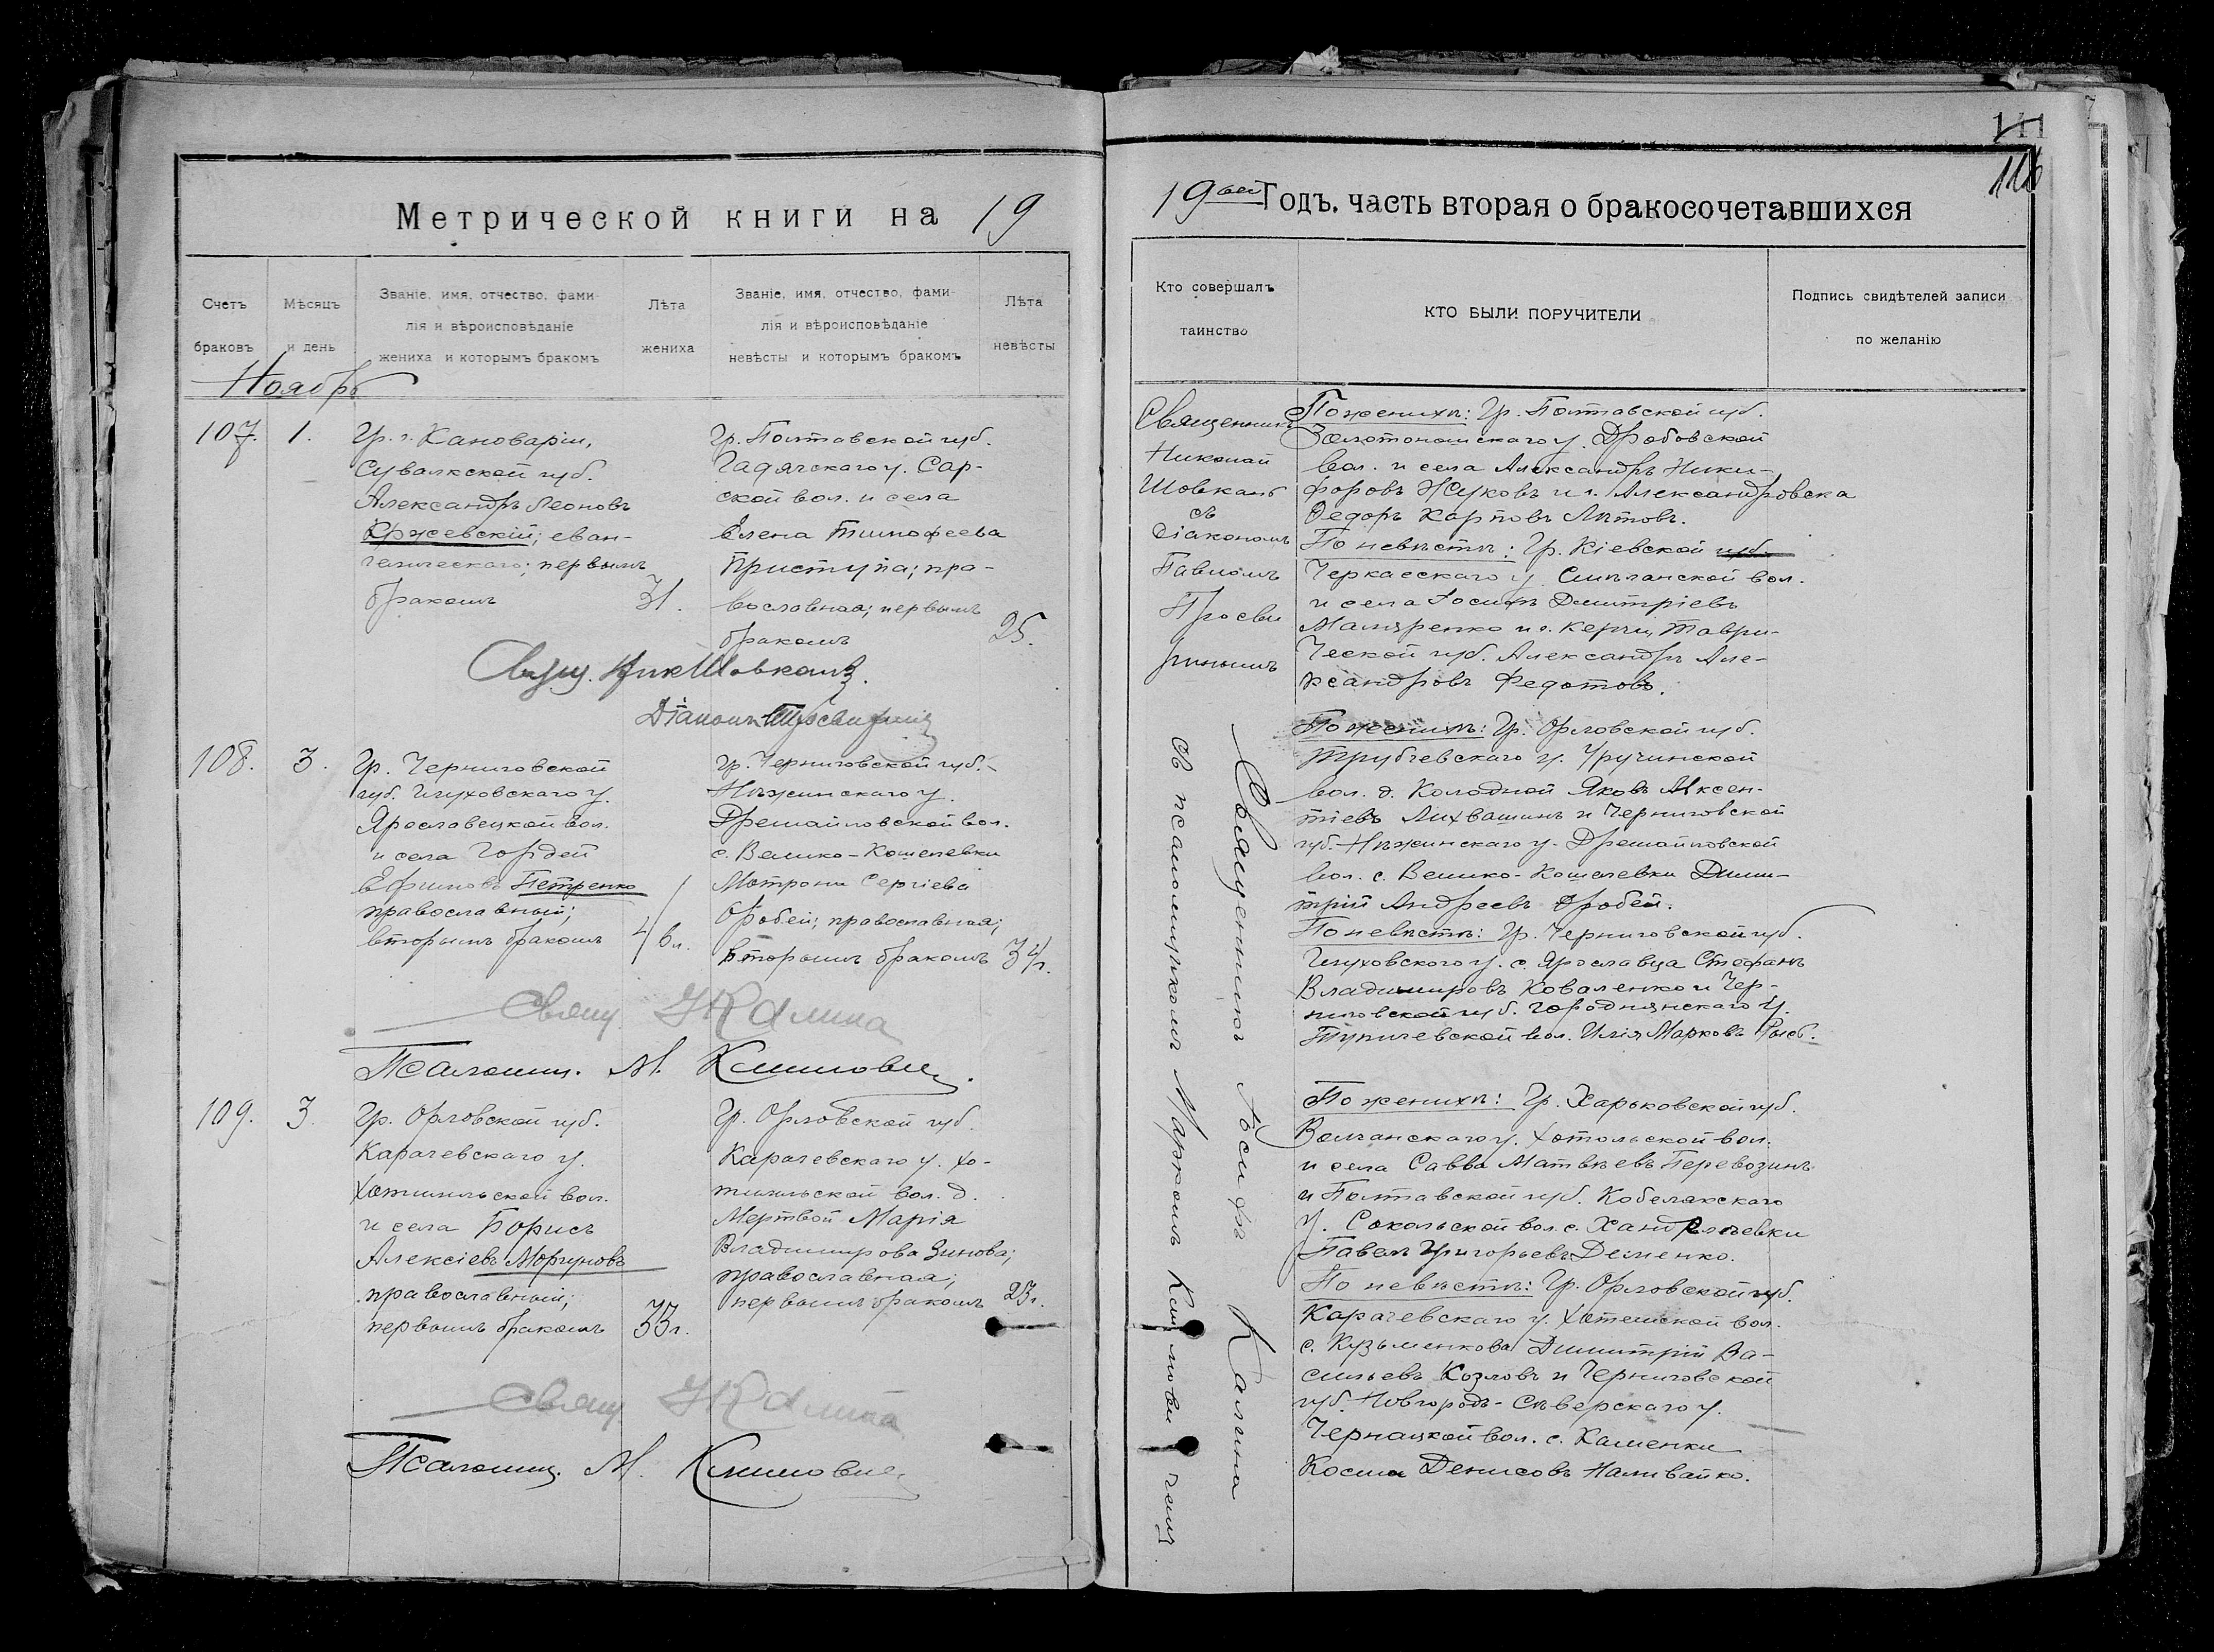 Метрической книги на 19
Счетъ
браковъ
Мѣсяцъ
и день
Званіе, имя, отчество, фами-
лія и вѣроисповѣданіе
жениха и которымъ бракомъ
Лѣта
жениха
Званіе, имя, отчество, фами-
лія и вѣроисповѣданіе
невѣсты и которымъ бракомъ
Лѣта
невѣсты
Ноябрь
107.
1.
Гр. г. Кановаріи,
Сувалкской губ.
Александръ Леоновъ
Кржевскій; еван-
гелическаго; первымъ
бракомъ
31.
Гр. Полтавской губ.
Гадячскаго у. Сар-
ской вол. и села
Елена Тимофеева
Приступа; пра-
вославная; первымъ
бракомъ
25.
Свящ. Ник Шовкань.
Діаконъ
108.
3.
Гр. Черниговской
губ. Глуховскаго у.
Ярославецкой вол.
и села Гордей
Ефимовъ Петренко
православный;
вторымъ бракомъ
46 л.
Гр. Черниговской губ.
Нѣжинскаго у.
Дремайловской вол.
с. Велико-Кошелевки
Матрона Сергіева
Оробей; православная;
вторымъ бракомъ
34 г.
Свящ. І Калина
Псаломщ. М. Климович
109.
3.
Гр. Орловской губ.
Карачевскаго у.
Хотимльской вол.
и села Борисъ
Алексіевъ Моргуновъ
православный;
первымъ бракомъ
33 г.
Гр. Орловской губ.
Карачевскаго у. Хо-
тимльской вол. д.
Мертвой Марія
Владимирова Зинова;
православная;
первымъ бракомъ
23 г.
Свящ. І Калина
Псаломщ. М. Климович
141
116
19 Годъ. часть вторая о бракосочетавшихся
Кто совершалъ
таинство
КТО БЫЛИ ПОРУЧИТЕЛИ
Подпись свидѣтелей записи
по желанію
Священникъ
Николай
Шовкань
съ
Діакономъ
Павломъ
Просви
ринымъ
По женихѣ: Гр. Полтавской губ.
Золотоношскаго у. Дробовской
вол. и села Александръ Ники-
форовъ Жуковъ и г. Александровска
Федоръ Карповъ Лытовъ.
По невѣстѣ: Гр. Кіевской губ.
Черкасскаго у. Смѣлянской вол.
и села Іосифъ Димитріевъ
Маляренко и г. Керчи, Таври-
ческой губ. Александръ Але-
ксандровъ Федотовъ.
Священникъ Іосифъ Калина
съ псаломщикомъ Маркомъ Климовичемъ
По женихѣ: Гр. Орловской губ.
Трубчевскаго у. Уручинской
вол. д. Колодной Яковъ Аксен-
тіевъ Лихвашинъ и Черниговской
губ. Нѣжинскаго у. Дремайловской
вол. с. Велико-Кошелевки Дими-
трій Андреевъ Оробей.
По невѣстѣ: Гр. Черниговской губ.
Глуховскаго у. с. Ярославца Стефанъ
Владимировъ Коваленко и Чер-
ниговской губ. Городнянскаго у.
Тупичевской вол. Илія Марковъ
По женихѣ: Гр. Харьковской губ.
Волчанскаго у. Хотольской вол.
и села Савва Матвѣевъ Перевозинъ
и Полтавской губ. Кобелякскаго
у. Сокольской вол. с.
Павелъ Григорьевъ Деменко.
По невѣстѣ: Гр. Орловской губ.
Карачевскаго у. вол.
с. Кузьменкова Димитрій Ва-
сильевъ Козловъ и Черниговской
губ. Новгородъ-Сѣверскаго у.
Чернацкой вол. с. Каменки
Косма Денисовъ Наливайко.